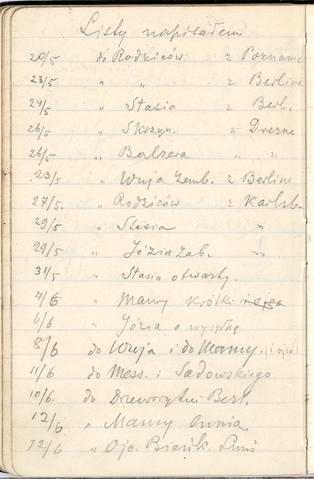 Listy napisałem
20/5 do Rodziców z Poznania
23/5 " " z Berlina
24/5 " Stasia " Berl.
26/5 " Skrzyn. " Drezna
26/5 " Balzera " "
23/5 " Wuja Zemb. z Berlina
27/5 " Rodziców z Karlsb.
29/5 " Stasia "
29/5 " Józia Zab. "
31/5 " Stasia otwarty.
4/6 " Mamy krótki
6/6 " Józia o wysyłkę
8/6 do Wuja i do Mamy. (i ojca)
11/6 do Mess. i Sadowskiego
10/6. do Berl.
12/6 " Mamy
12/6 " Ojc.